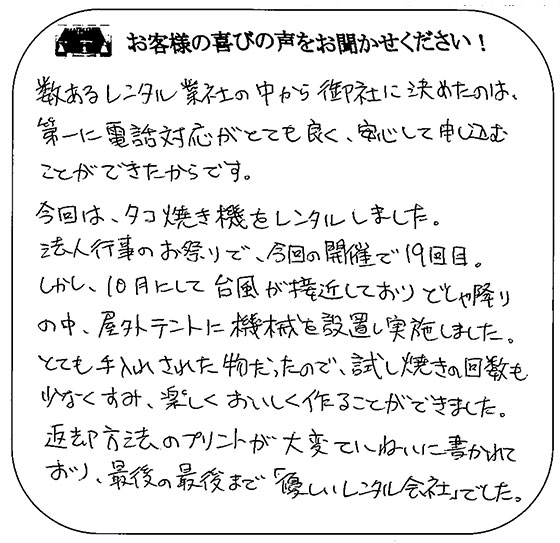 お客様の喜びの声をお聞かせください！
数あるレンタル業社の中から御社に決めたのは、
第一に電話対応がとても良く、安心して申し込む
ことができたからです。
今回は、タコ焼き機をレンタルしました。
法人行事のお祭りで、今回の開催で19回目。
しかし、10月にして台風が接近しておりどしゃ降り
の中、屋外テントに機械を設置し実施しました。
とても手入れされた物だったので、試し焼きの回数も
少なくすみ、楽しくおいしく作ることができました。
返却方法のプリントが大変ていねいに書かれて
おり、最後の最後まで「優しいレンタル会社」でした。